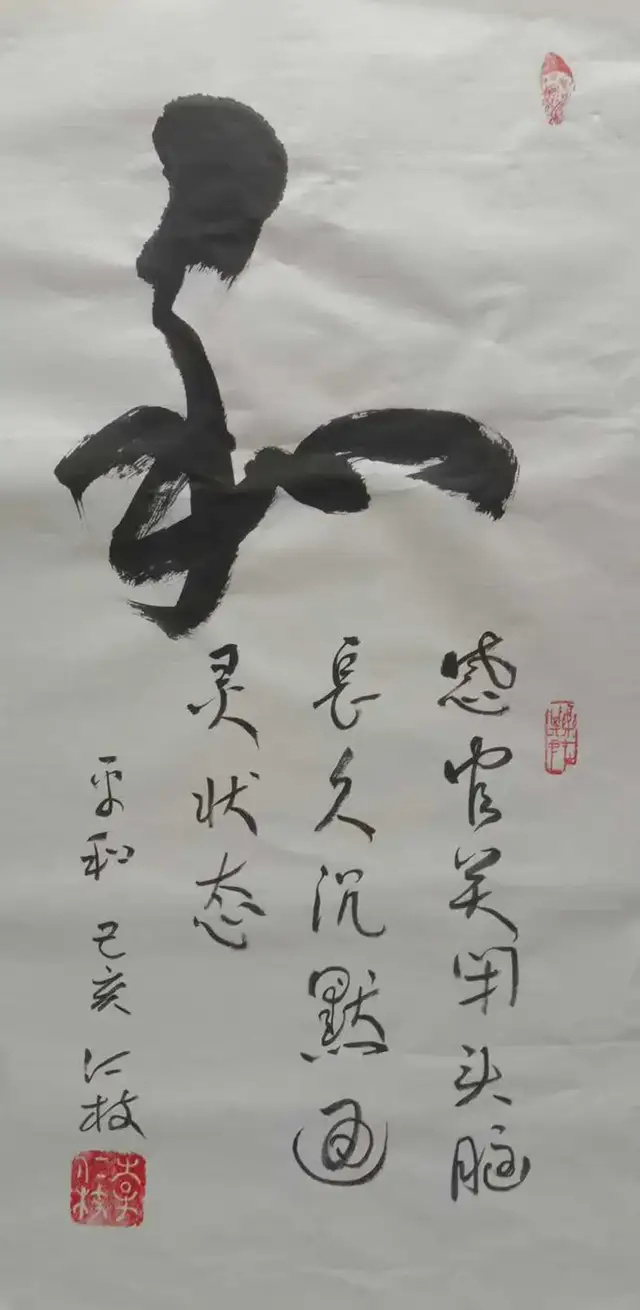 和
感官关闭头脑
长久沉默通
灵状态
平和 己亥 仁枝
李仁枝